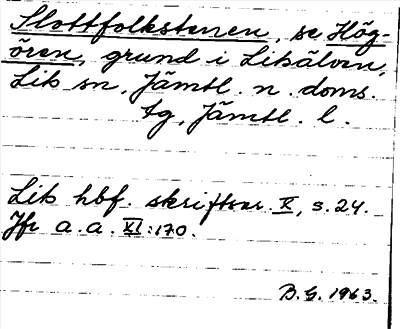 Slottfolkstenen, se Hög-
ören, grund i Litsälven,
Lits sn, Jämtl. n. doms.
tg, Jämtl. l.
Lits hbf. skriftser. X, s. 24.
Jfr a. a. XI:170.
B. G. 1963.